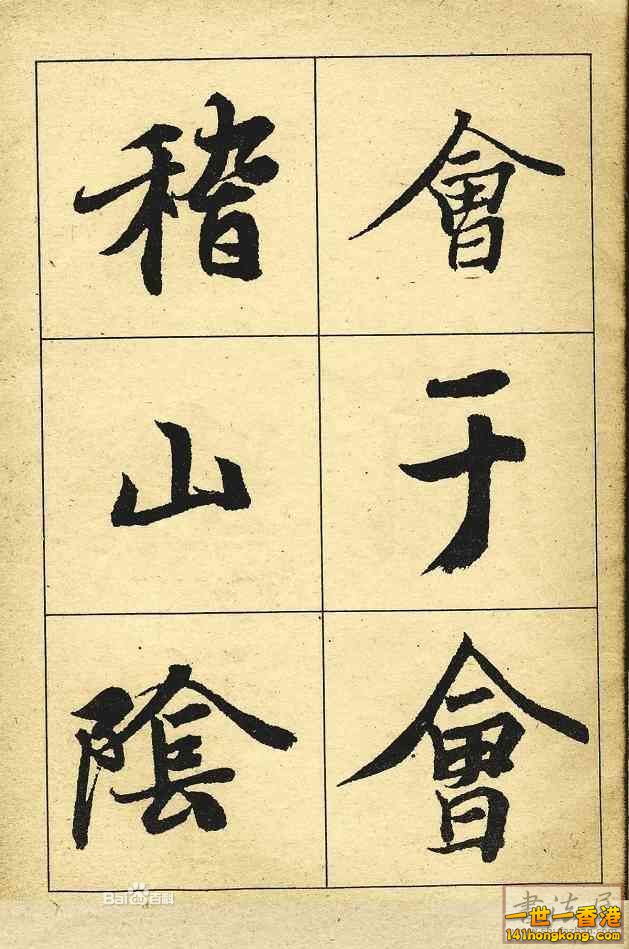 會于會
稽山陰
Bai百科
書法
一世一香港
141hongkong.com